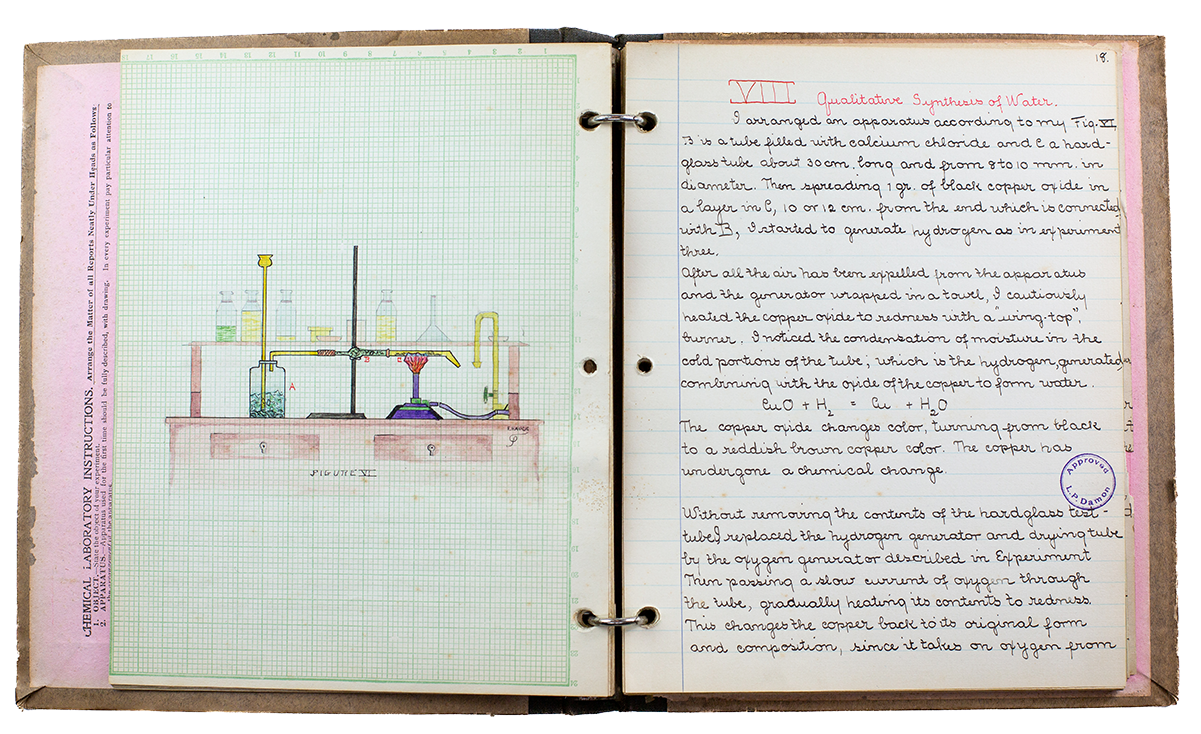 CHEMICAL LABORATORY INSTRUCTIONS. Arrange the Matter of all Reports Neatly Under Heads as Follows
1. OBJECT.—State the object of your experiment.
2. APPARATUS.—Apparatus used for the first time should be fully described, with drawing. In every experiment pay particular attention to
the arrangement of the apparatus.
A
B
C
FIGURE VI
18.
VIII Qualitative Synthesis of Water.
I arranged an apparatus according to my Fig. VI
B is a tube filled with calcium chloride and C a hard-
glass tube about 30 cm. long and from 8 to 10 mm. in
diameter. Then spreading 1 gr. of black copper oxide in
a layer in C, 10 or 12 cm. from the end which is connected
with B, I started to generate hydrogen as in experiment
three.
After all the air has been expelled from the apparatus
and the generator wrapped in a towel, I cautiously
heated the copper oxide to redness with a "wing-top",
burner. I noticed the condensation of moisture in the
cold portions of the tube, which is the hydrogen, generated,
combining with the oxide of the copper to form water.
CuO + H2 = Cu + H2O
The copper oxide changes color, turning from black
to a reddish brown copper color. The copper has
undergone a chemical change.
Approved
L.P. Damon
Without removing the contents of the hardglass test-
tube, I replaced the hydrogen generator and drying tube
by the oxygen generator described in Experiment
Then passing a slow current of oxygen through
the tube, gradually heating its contents to redness.
This changes the copper back to its original form
and composition, since it takes on oxygen from